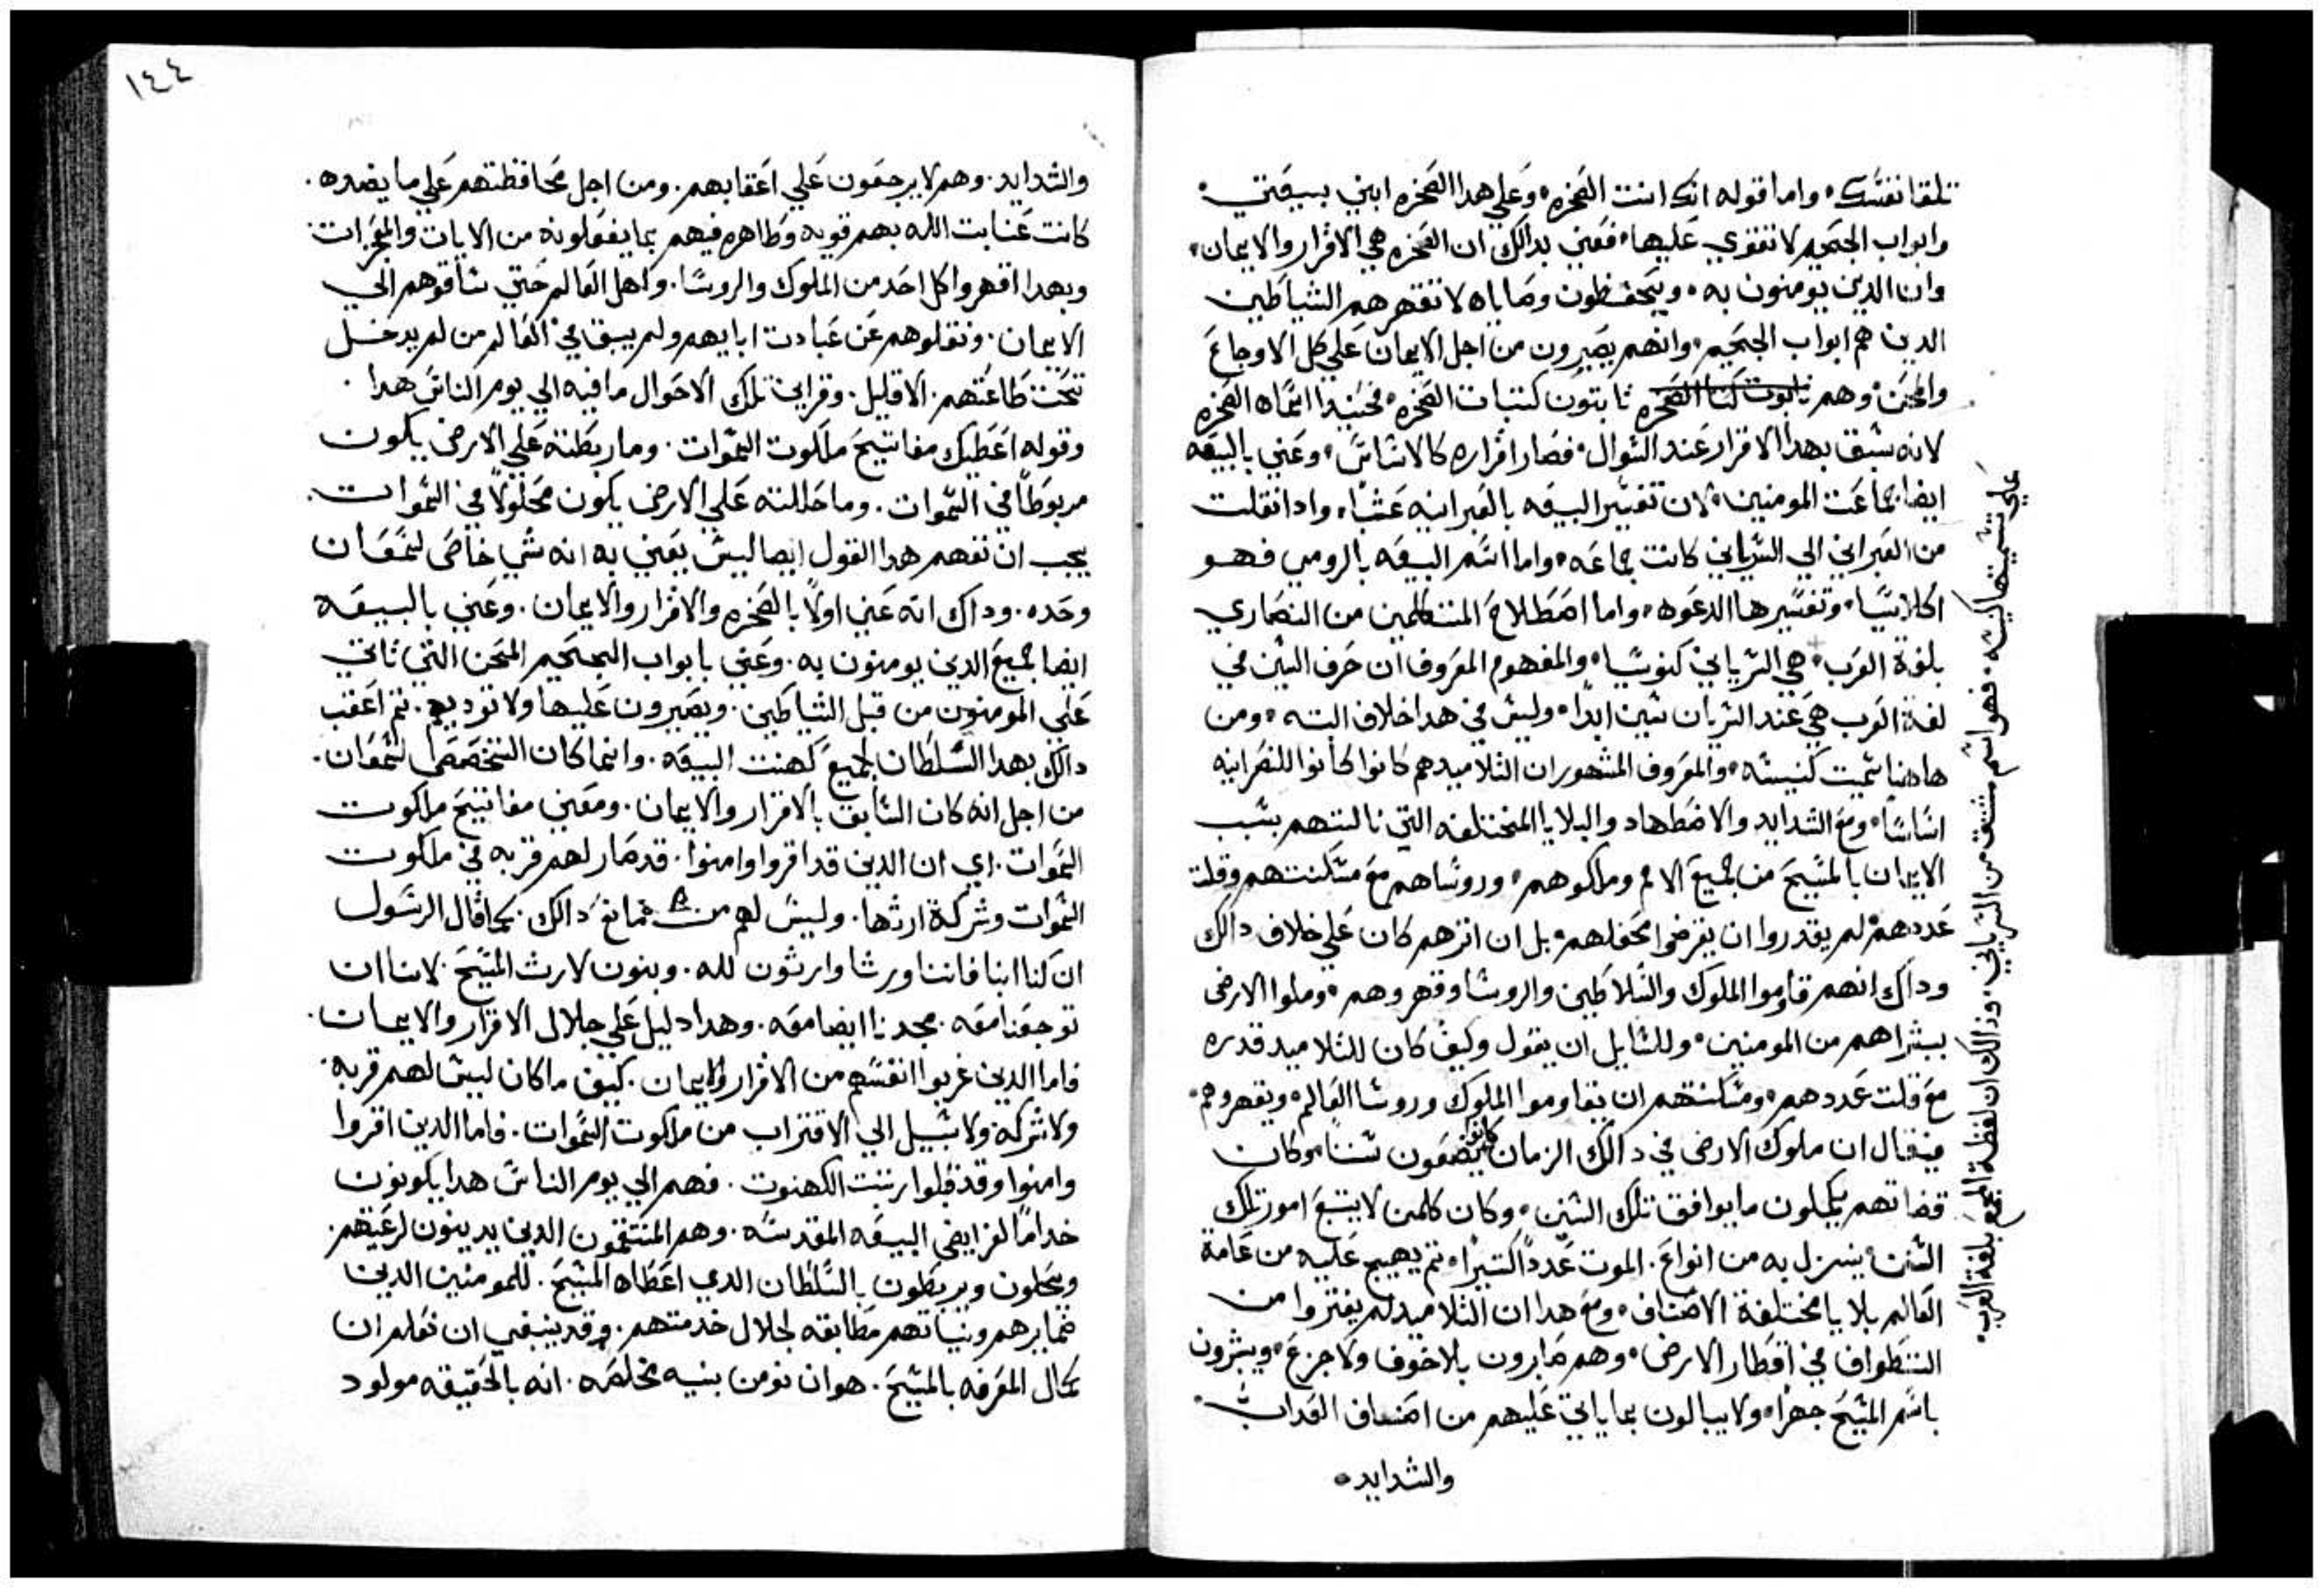 تلقا نفسك، واما قوله انك انت الصخره، وعلي هدا الصخره ابني بيعتي،
وابواب الجحيم لا تقوي عليها، فعني بدالك ان الصخره هي الاقرار والايمان،
وان الدين يومنون به، ويحفظون وصاياه لا تقهرهم الشياطين
الدين هم ابواب الجحيم، وانهم يصبرون من اجل الايمان علي كل الاوجاع
والمحن، وهم ثابتون كتبات الصخره، فحينيدا اسماه الصخره
لانه سبق بهدا الاقرار عند السوال، فصار اقراره كالاساس، وعني بالبيعه
ايضا جماعت المومنين، لان تفسير البيعه بالعبرانيه عشا، وادا نقلت
من العبراني الي السرياني كانت جماعه، واما اسم البيعه بالرومي فهو
اكلاسيا، وتفسيرها الدعوه، واما اصطلاح المتكلمين من النصاري
بلغة العرب، هي السرياني كنوشيا، والمفهوم المعروف ان حرف السين في
لغة العرب هي عند السريان شين ابدا، وليس في هدا خلاف البته، ومن
هاهنا سميت كنيسه، والمعروف المشهور ان التلاميد هم كانوا للنصرانيه
اساسا، ومع الشدايد والاضطهاد والبلايا المختلفه التي نالتهم بسبب
الايمان بالمسيح من جميع الامم وملوكهم، وروساهم مع مسكنتهم وقلت
عددهم، لم يقدروا ان يقرضوا محفلهم، بل ان اترهم كان علي خلاف دالك
وداك انهم قاوموا الملوك والسلاطين والروسا وقهروهم، وملوا الارض
ببشراهم من المومنين، وللسايل ان يقول وكيف كان للتلاميد قدره
مع قلت عددهم، ومسكنتهم ان يقاوموا الملوك وروسا العالم، ويقهروهم،
فيقال ان ملوك الارض في دالك الزمان كانوا يضعون سننا، وكان
قضاتهم يكملون ما يوافق تلك السنن، وكان كلمن لا يتبع امور تلك
السنن، ينزل به من انواع الموت عددا كتيرا، تم يهيج عليه من عامة
العالم بلايا مختلفة الاصناف، ومع هدا ان التلاميد لم يفتروا من
التطواف في اقطار الارض، وهم صابرون بلا خوف ولا جزع، ويبشرون
باسم المسيح جهرا، ولا يبالون بما ياتي عليهم من اصناف العداب،
والشدايد،
علي تسميتها كنيسه، فهو اسم مشتق من السرياني، وذالك ان لفظة الجمع بلغة العرب،
١٤٤
والشدايد. وهم لا يرجعون علي اعقابهم. ومن اجل محافظتهم علي ما يضده.
كانت عنايت الله بهم قويه وظاهره فيهم بما يفعلونه من الايات والمعجزات.
وبهدا اقهروا كل احد من الملوك والروسا. واهل العالم حتي ساقوهم الي
الايمان. ونقلوهم عن عبادت ابايهم ولم يبق في العالم من لم يدخل
تحت طاعتهم. الا قليل. وقراين تلك الاحوال ما فيه الي يوم الناس هدا.
وقوله اعطيك مفاتيح ملكوت السموات. وما ربطته علي الارض يكون
مربوطا في السموات. وما حللته علي الارض يكون محلولا في السموات.
يجب ان تفهم هدا القول ايضا ليس يعني به انه شي خاص لسمعان
وحده. وداك انه عني اولا بالصخره والاقرار والايمان. وعني بالبيعه
ايضا جميع الدين يومنون به. وعني بابواب الجحيم المحن التي تاتي
علي المومنون من قبل الشياطين. ويصبرون عليها ولا توديهم. تم اعقب
دالك بهدا السلطان لجميع كهنت البيعه. وانما كان التخصص لسمعان.
من اجل انه كان السابق بالاقرار والايمان. ومعني مفاتيح ملكوت
السموات. اي ان الدين قد اقروا وامنوا. قد صار لهم قربه في ملكوت
السموات وشركة ارثها. وليس لهم من مانع دالك. كما قال الرسول
ان كنا ابنا فاننا ورثا وارثون لله. وبنون لارث المسيح. لاننا ان
توجعنا معه. مجدنا ايضا معه. وهدا دليل علي جلال الاقرار والايمان.
فاما الدين غربوا انفسهم من الاقرار والايمان. كيف ما كان ليس لهم قربه.
ولا شركه ولا سبيل الي الاقتراب من ملكوت السموات. فاما الدين اقروا
وامنوا وقد قبلوا رتبت الكهنوت. فهم الي يوم الناس هدا يكونون
خداما لفرايض البيعه المقدسه. وهم المنتقمون الدين يدينون لرعيتهم.
ويحلون ويربطون بالسلطان الدي اعطاه المسيح. للمومنين الدين
ضمايرهم ونياتهم مطابقه لجلال خدمتهم. وقد ينبغي ان نعلم ان
كمال المعرفه بالمسيح. هو ان نومن بنيه مخلصه. انه بالحقيقه مولود